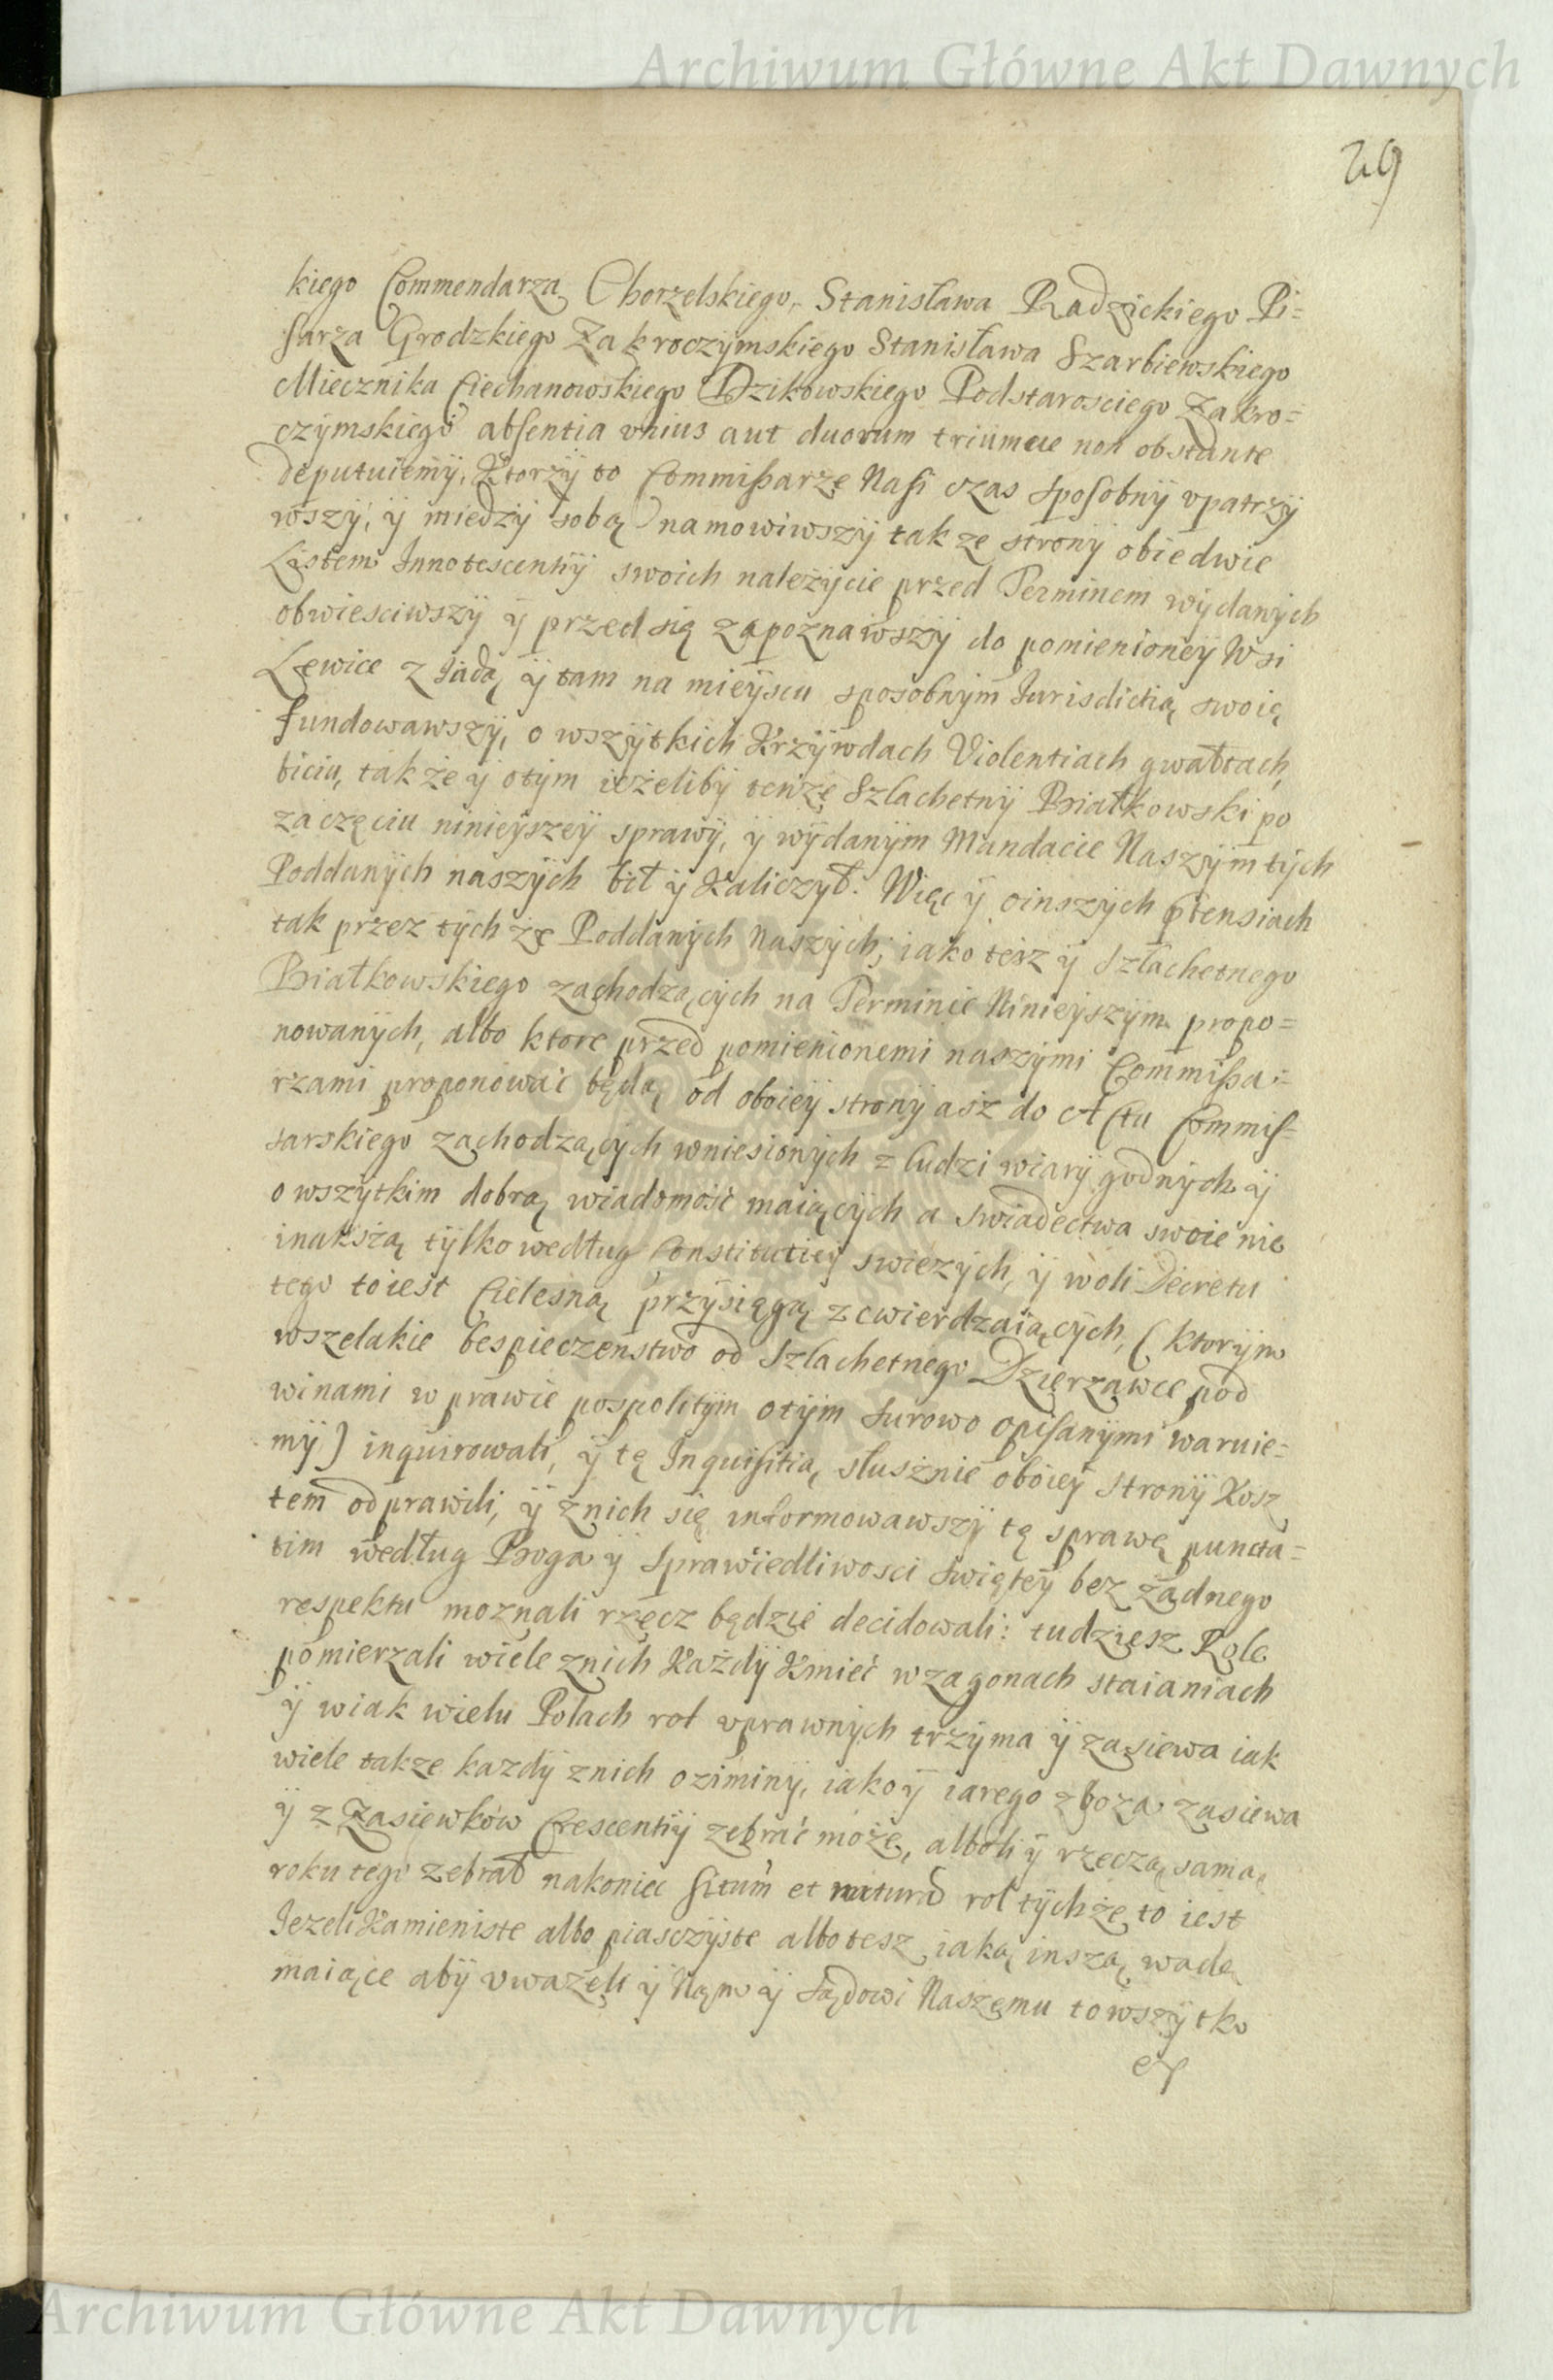 Archiwum Główne Akt Dawnych
29
kiego Commendarza Chorzelskiego, Stanisława Radzickiego Pi=
sarza Grodzkiego Zakroczÿmskiego Stanisława Szarbiewskiego
Miecznika Ciechanowskiego Dzikowskiego Podstarosciego Zakro=
czÿmskiego absentia vnius aut duorum triumue non obstante
deputuiemÿ, Ktorzÿ to Commissarze Nasi czas sposobnÿ vpatrzÿ
wszÿ, ÿ miedzÿ sobą namowiwszÿ takze stronÿ obiedwie
Listem Innotescentiÿ swoich należÿcie przed Terminem wÿdanÿch
obwiesciwszÿ ÿ przed się zapoznawszÿ do pomienioneÿ Wsi
Lewice z Jadą ÿ tam na mieÿscu sposobnÿm Iurisdictią swoię
fundowawszÿ, o wszÿtkich Krzÿwdach Violentiach gwałtach
biciu, także ÿ otÿm ieżelibÿ tenże Szlachetnÿ Białkowski po
zaczęciu ninieÿszeÿ sprawÿ, ÿ wÿdanÿm Mandacie Naszÿm tÿch
Poddanÿch naszÿch bił ÿ Kaliczÿł. Więc ÿ oinszÿch ptensiach
tak przez tÿch że Poddanÿch Naszÿch, iako tesz ÿ Szlachetnego
Białkowskiego zachodzącÿch na Terminie Ninieÿszÿm propo=
nowanÿch, albo ktore przed pomienionemi naszÿmi Commissa=
rzami proponować będą od oboieÿ stronÿ asz do Actu Commis=
sarskiego zachodzącÿch wniesionÿch z ludzi wiarÿ godnÿch ÿ
o wszÿtkim dobrą wiadomość maiącÿch a swiadectwa swoie nie
inakszą tÿlko według Constitutieÿ swieżÿch, ÿ woli Decretu
tego toiest Cielesną przÿsięgą zcwierdzaiącÿch, (ktorÿm
wszelakie bespieczenstwo od Szlachetnego Dzierzawce pod
winami w prawie pospolitÿm otÿm surowo opisanÿmi waruie=
mÿ) inquirowali, ÿ tę Inquisitią słusznie oboieÿ Stronÿ Kosz
tem odprawili, ÿ znich się informowawszÿ tę sprawę puncta=
tim według Boga ÿ Sprawiedliwosci swięteÿ bez żadnego
respektu moznali rzecz będzie decidowali: tudziesz Role
pomierzali wiele znich Każdÿ Kmieć wzagonach staianiach
ÿ wiak wielu Polach rol vprawnÿch trzÿma ÿ zasiewa iak
wiele takze kazdÿ znich oziminÿ, iako ÿ iarego zboża zasiewa
ÿ z Zasiewków Crescentiÿ zebrać może, alboli ÿ rzeczą samą
roku tego zebrał nakoniec situm et naturā rol tÿchże to iest
Jezeli Kamieniste albo piasczÿste albo tesz iaką inszą wadę
maiące abÿ vważÿli ÿ Nam ÿ Sądowi Naszemu to wszÿtko
ex
Archiwum Główne Akt Dawnych